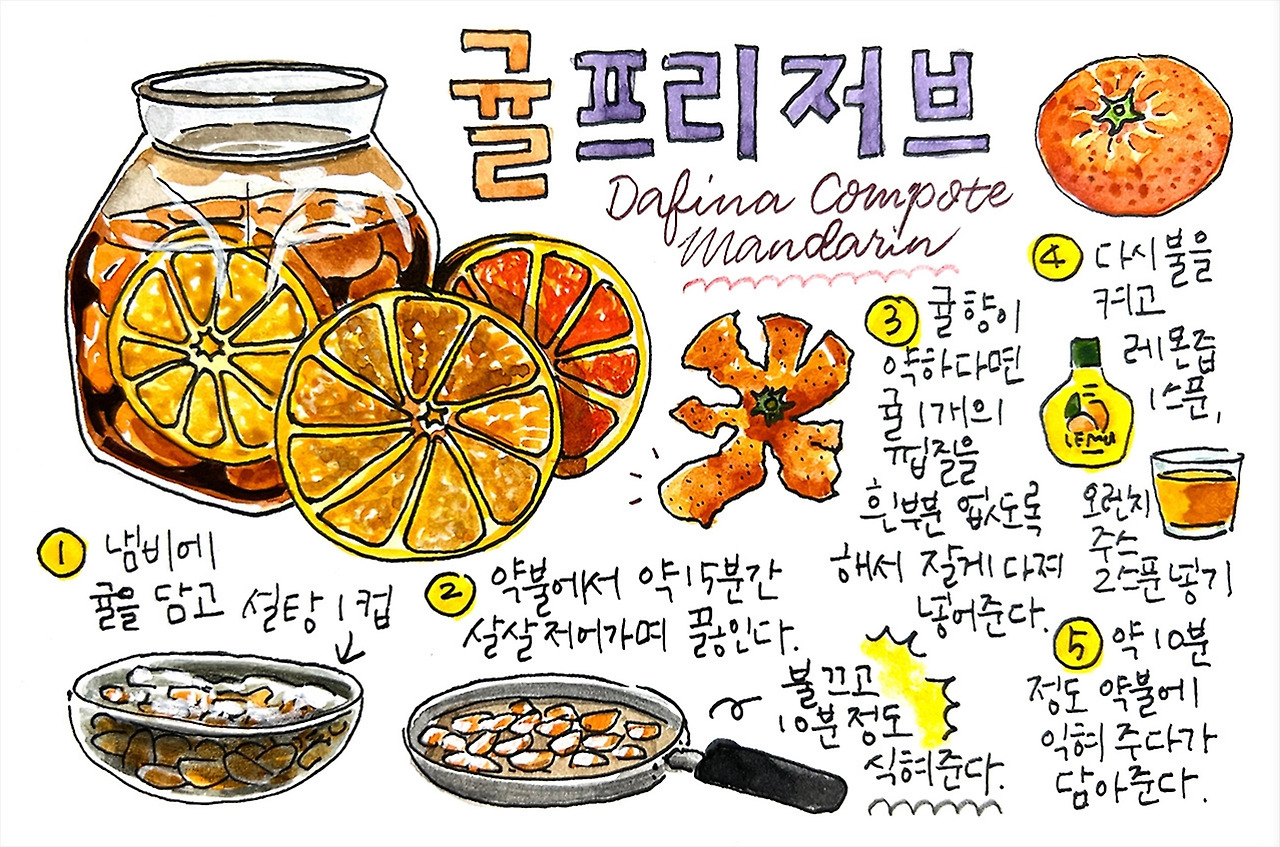 귤프리저브
Dafina Compote
Mandarin
① 냄비에
귤을 담고 설탕 1컵
② 약불에서 약 15분간
살살 저어가며 끓인다.
불 끄고
10분 정도
식혀준다.
③ 귤향이
약하다면
귤 1개의
껍질을
흰부분 없도록
해서 잘게 다져
넣어준다.
④ 다시 불을
켜고
레몬즙
1스푼,
LEMO
오렌지
주스
2스푼 넣기
⑤ 약 10분
정도 약불에
익혀 주다가
담아준다.